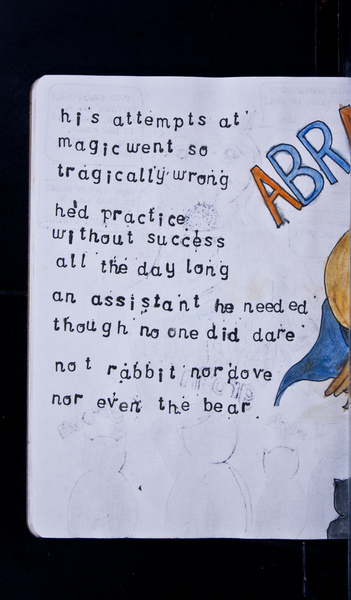 his attempts at
magic went so
tragically wrong
he'd practice
without success
all the day long
an assistant he needed
though no one did dare
not rabbit nor dove
nor even the bear
ABR